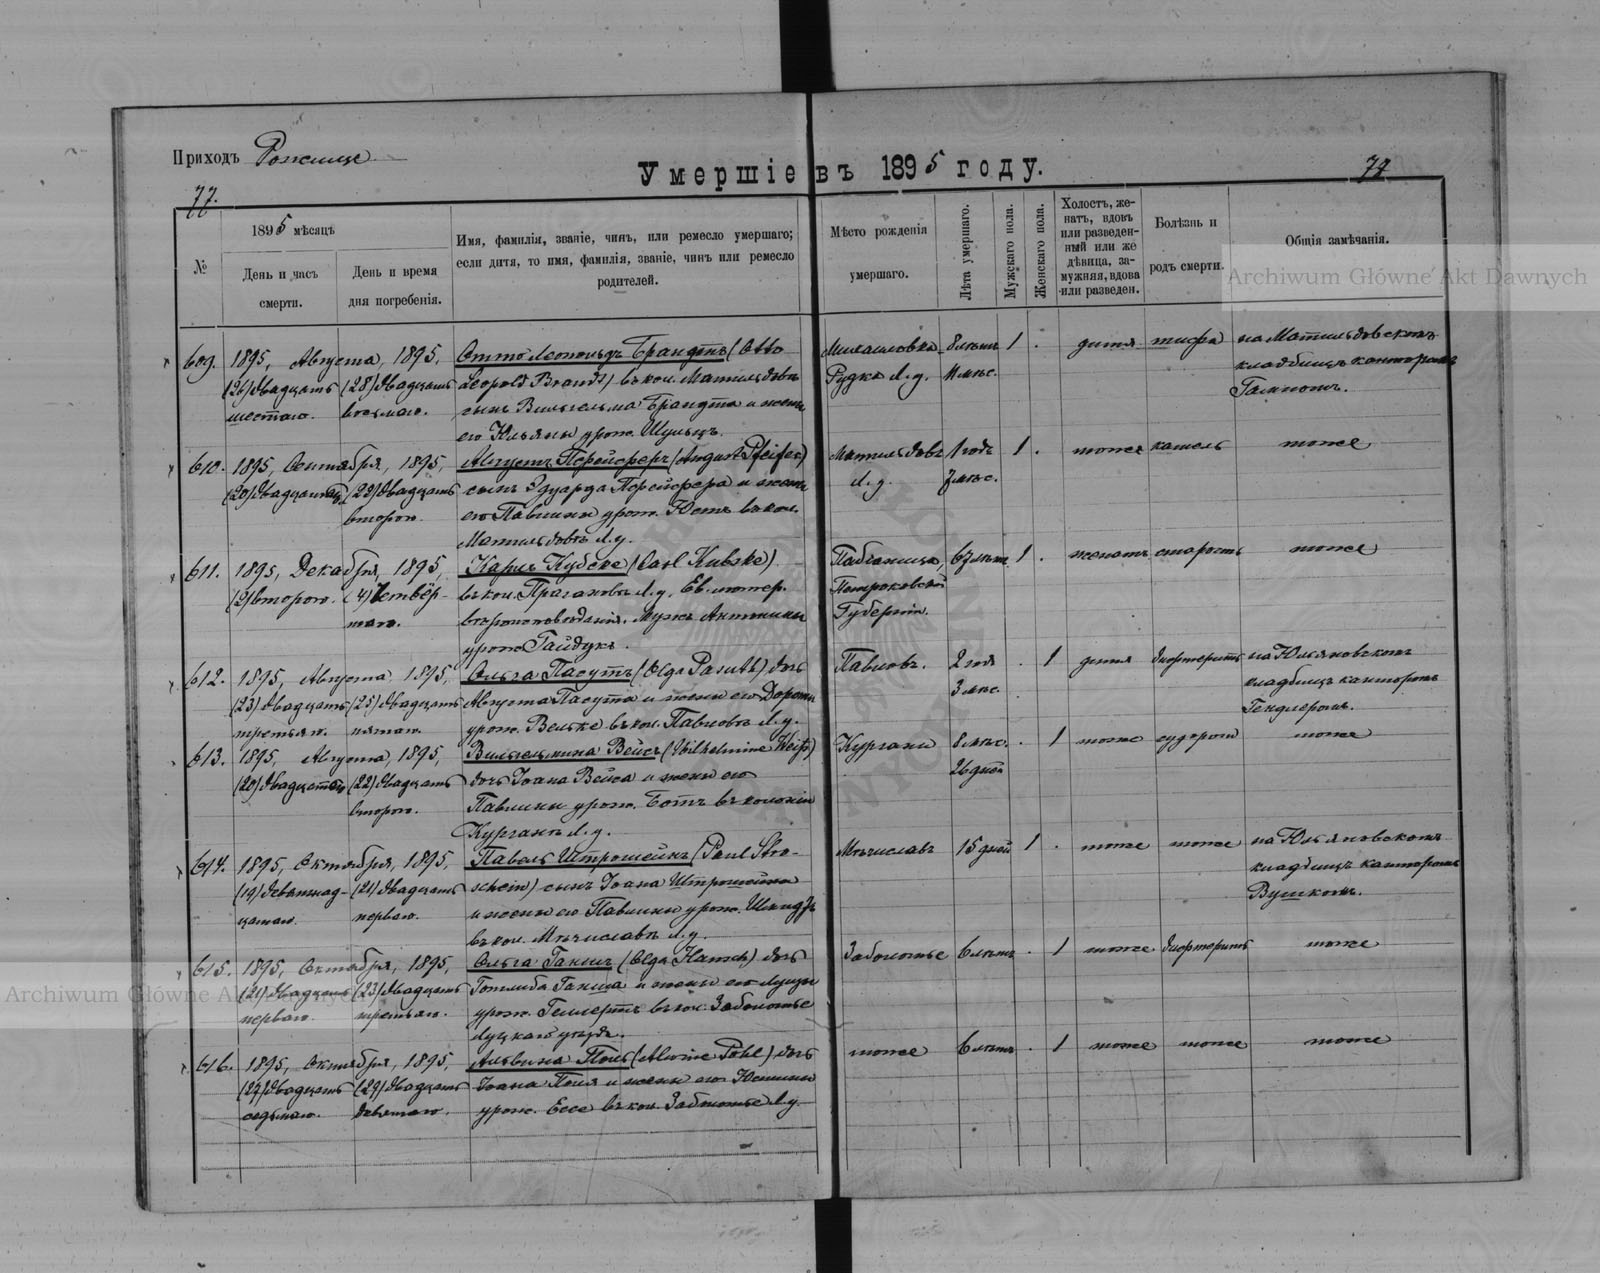 Приходъ Рожище
Умершіе въ 1895 году.
77.
74
№
1895 мѣсяцъ
День и часъ смерти.
День и время дня погребенія.
Имя, фамилія, званіе, чинъ, или ремесло умершаго;
если дитя, то имя, фамилія, званіе, чинъ или ремесло
родителей.
Мѣсто рожденія
умершаго.
Лѣта умершаго.
Мужскаго пола.
Женскаго пола.
Холостъ, же-
натъ, вдовъ
или разведен-
ный или же
дѣвица, за-
мужняя, вдова
или разведен.
Болѣзнь и
родъ смерти.
Общія замѣчанія.
Archiwum Główne Akt Dawnych
609. 1895, Августа, 1895, Отто Леопольдъ Брандтъ (Otto Михайловка 8 лѣтъ 1 . дитя тифа на Матильдовскомъ
(26) двадцать (28) двадцать Leopold Brandt) въ кол. Матильдовъ Рудка Л.у. 11 мѣс. кладбищѣ канторомъ
шестаго. восьмаго. сынъ Вильгельма Брандта и жены
его Юльяны урож. Шульцъ.
610. 1895, Сентября, 1895, Августъ Пфейферъ (August Pfeifer) Матильдовъ 1 годъ 1 . тоже кашель тоже
(20) двадцатаго (22) двадцать сынъ Эдуарда Пфейфера и жены Л.у. 7 мѣс.
второго его Павлины урож. Ютъ въ кол.
Матильдовъ Л.у.
611. 1895, Декабря, 1895, Карлъ Кубске (Carl Kubske) Пабіаницы, 67 лѣтъ 1 . женатъ старость тоже
(2) второго. (4) Четвёр- въ кол. Л.у. Ев. лютер. Петроковской
таго. вѣроисповѣданія. Мужъ Антонины Губерніи.
урож. Гайдукъ.
612. 1895, Августа 1895, Ольга Пасутъ (Olga Pasuth) дочь Павловъ. 2 года . 1 дитя дифтеритъ на Юльяновскомъ
(23) двадцать (25) двадцать Августа Пасута и жены его Доротеи 3 мѣс. кладбищѣ канторомъ
третьяго. пятаго. урож. Вельке въ кол. Павловъ Л.у. Гендлеромъ.
613. 1895, Августа, 1895, Вильгельмина Вейсъ (Wilhelmine Weiß) Курганы 8 мѣс. . 1 тоже судороги тоже
(20) двадцатаго (22) двадцать дочь Іоана Вейса и жены его 26 дней
второго. Павлины урож. Ботъ въ колоніи
Курганъ Л.у.
614. 1895, Октября, 1895, Павелъ Штрошейнъ (Paul Stro- Мѣчиславъ 15 дней 1 . тоже тоже на Юльяновскомъ
(19) девятнад- (21) двадцать schein) сынъ Іоана Штрошейна кладбищѣ канторомъ
цатаго. перваго. и жены его Павлины урож. Шмидтъ Вушкомъ.
въ кол. Мѣчиславъ Л.у.
615. 1895, Октября, 1895, Ольга Ганшъ (Olga Hansch) дочь Заболотье 6 лѣтъ . 1 тоже дифтеритъ тоже
(21) двадцать (23) двадцать Готлиба Ганша и жены его Луизы
перваго. третьяго. урож. Геллертъ въ кол. Заболотье
Луцкаго уѣзда.
616. 1895, Октября, 1895, Альвина Поль (Alwine Pohl) дочь тоже 6 лѣтъ . 1 тоже тоже тоже
(27) двадцать (29) двадцать Іоана Поля и жены его Юстины
седьмаго. девятаго. урож. Ессе въ кол. Заболотье Л.у.
Archiwum Główne Akt Dawnych